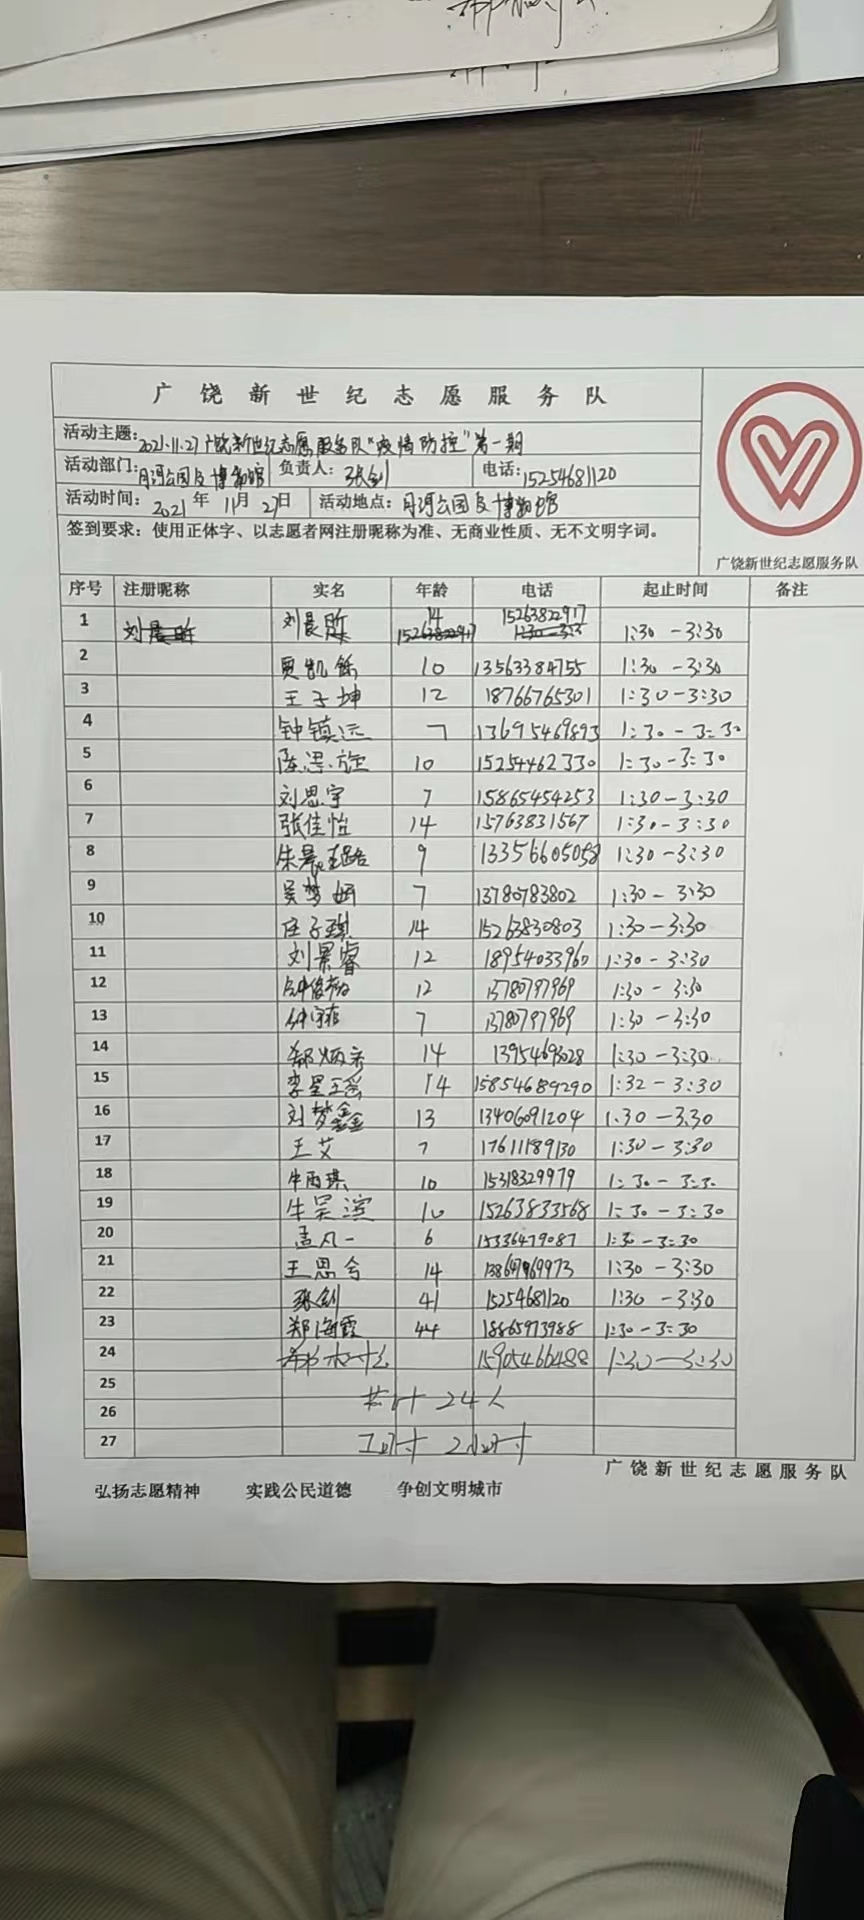 广饶新世纪志愿服务队
活动主题: 2021.11.27广饶新世纪志愿服务队"疫情防控"第一期
活动部门: 月河公园及博物馆 负责人: 张剑 电话: 15254681120
活动时间: 2021年11月27日 活动地点: 月河公园及博物馆
签到要求：使用正体字、以志愿者网注册昵称为准、无商业性质、无不文明字词。
广饶新世纪志愿服务队
序号 注册昵称 实名 年龄 电话 起止时间 备注
1 刘晨昕 14 15263822917 1:30-3:30
2 贾凯铄 10 13563384755 1:30-3:30
3 王子坤 12 18766765301 1:30-3:30
4 钟镇远 7 13695469893 1:30-3:30
5 陈思旋 10 15254462330 1:30-3:30
6 刘思宇 7 15865454253 1:30-3:30
7 张佳怡 14 15763831567 1:30-3:30
8 9 13356605058 1:30-3:30
9 吴梦妍 7 13780783802 1:30-3:30
10 庄子琪 14 15263830803 1:30-3:30
11 刘景睿 12 18954033960 1:30-3:30
12 12 13780797969 1:30-3:30
13 7 13780797969 1:30-3:30
14 14 1:30-3:30
15 14 15854689290 1:32-3:30
16 刘梦鑫 13 13406091204 1:30-3:30
17 王艾 7 17611189130 1:30-3:30
18 牛雨琪 10 15318329979 1:30-3:30
19 牛昊滨 10 15263833568 1:30-3:30
20 孟凡一 6 15336479087 1:30-3:30
21 王思兮 14 1:30-3:30
22 张剑 41 15254681120 1:30-3:30
23 郑海霞 44 18865973988 1:30-3:30
24 15905466488 1:30-3:30
25 共计24人
26
27 工时2小时
广饶新世纪志愿服务队
弘扬志愿精神 实践公民道德 争创文明城市